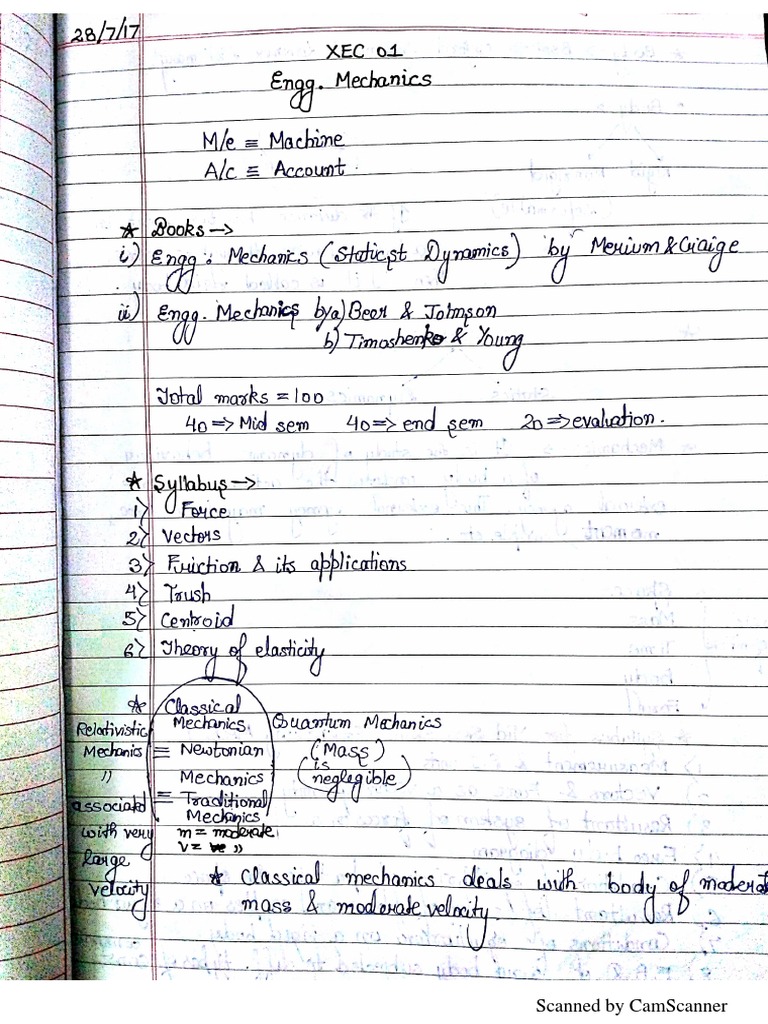 28/7/17
XEC 01
Engg. Mechanics
M/c ≡ Machine
A/c ≡ Account.
* Books →
i) Engg. Mechanics (Statics & Dynamics) by Merium & Craige
ii) Engg. Mechanics by a) Beer & Johnson
b) Timoshenko & Young
Total marks = 100
40 => Mid sem 40 => end sem 20 => evaluation.
* Syllabus →
1) Force
2) Vectors
3) Friction & its applications
4) Trush
5) Centroid
6) Theory of elasticity
* Classical
Mechanics Quantum Mechanics
Relativistic
Mechanics ≡ Newtonian (Mass)
Mechanics is
negligible)
" ≡ Traditional
associated Mechanics
with very m = moderate
large v = "
velocity
* Classical mechanics deals with body of moderat
mass & moderate velocity.
Scanned by CamScanner